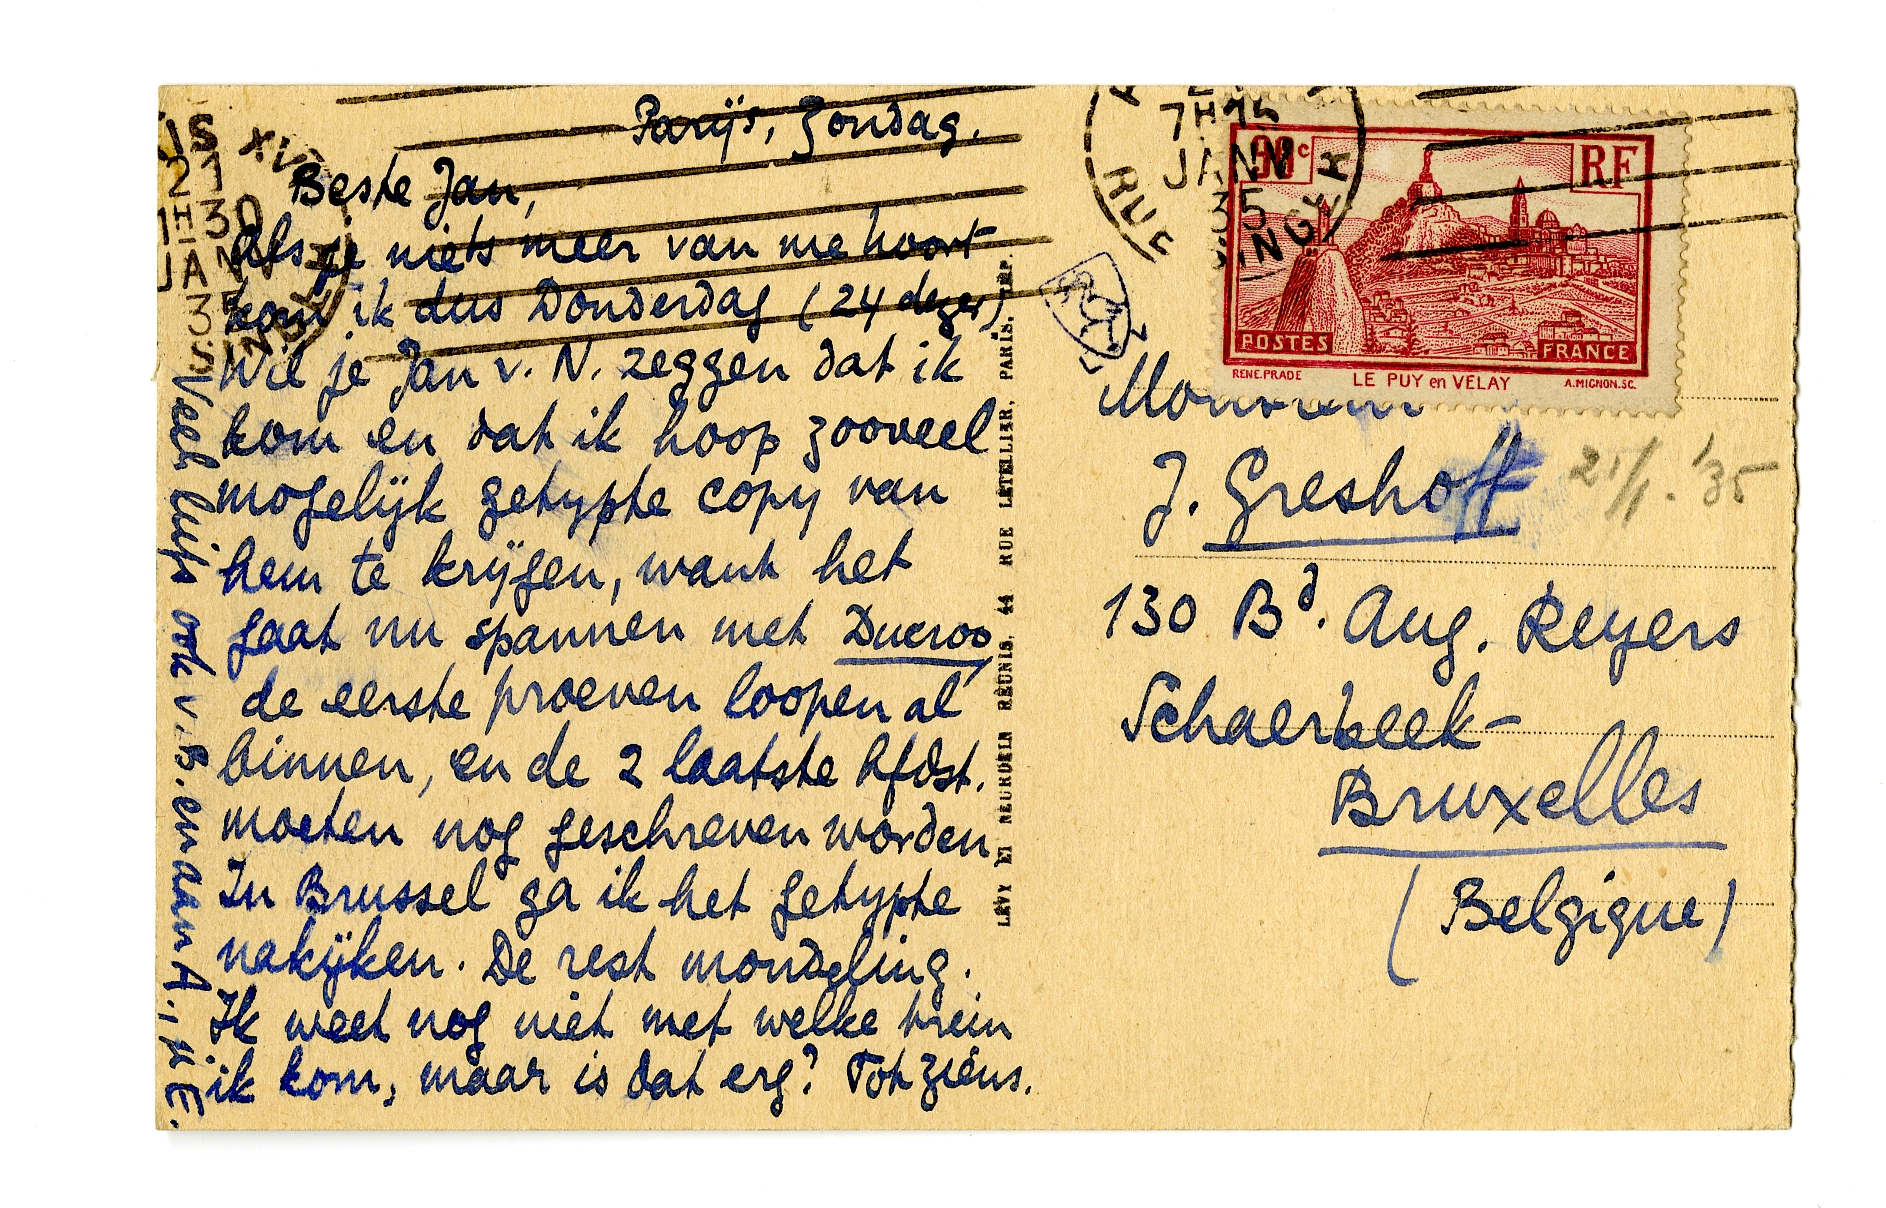 Parijs, Zondag.
Beste Jan,
Als je niets meer van me hoort
kom ik dus Donderdag (24 dezer)
Wil je Jan v. N. zeggen dat ik
kom en dat ik hoop zooveel
mogelijk getypte copy van
hem te krijgen, want het
gaat nu spannen met Ducroo,
de eerste proeven loopen al
binnen, en de 2 laatste hfdst.
moeten nog geschreven worden.
In Brussel ga ik het getypte
nakijken. De rest mondeling.
Ik weet nog niet met welke trein
ik kom, maar is dat erg? Tot ziens.
Veel liefs ook v. B. en aan A.,, je E.
21
1H30
JANV
35
LÉVY ET NEURDEIN RÉUNIS, 44 RUE LETELLIER, PARIS. IMP.
7H15
JANV
35
RUE SINGER
50c
RF
POSTES
FRANCE
RENÉ.PRADE
LE PUY en VELAY
A.MIGNON.SC.
Monsieur
J. Greshoff
21/1.'35
130 Bd. Aug. Reyers
Schaerbeek-
Bruxelles
(Belgique)